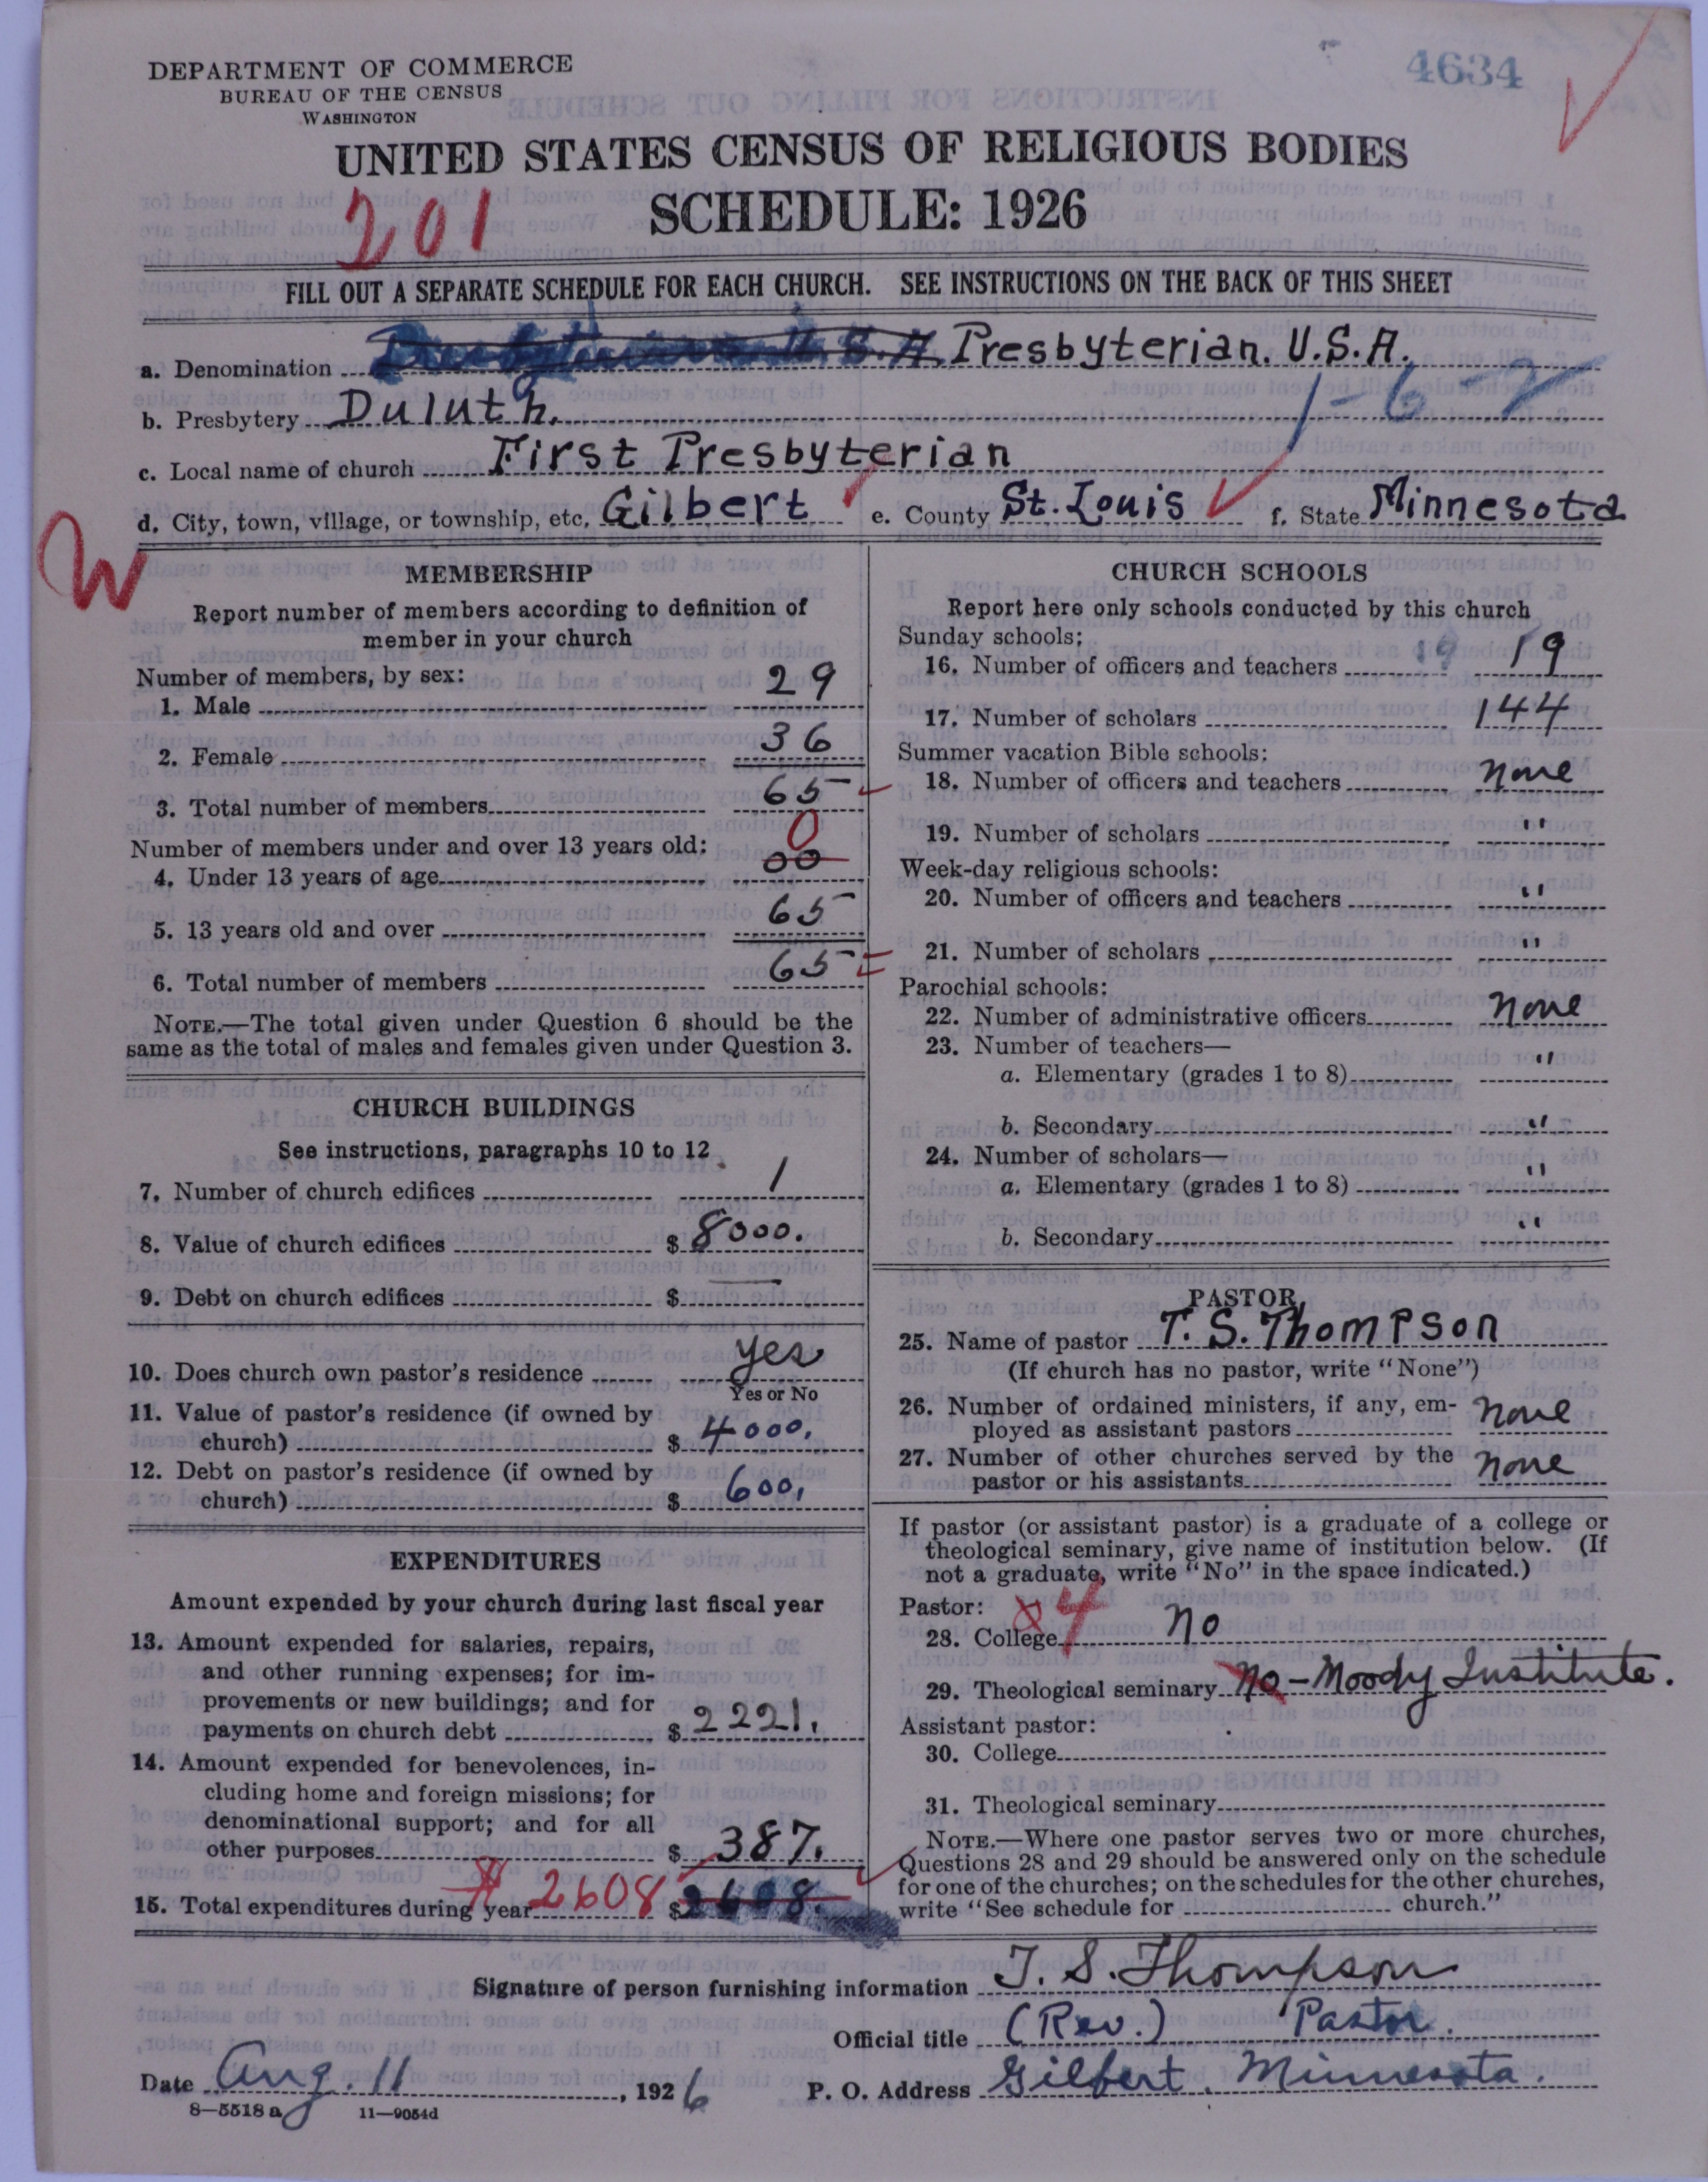 4634
DEPARTMENT OF COMMERCE
BUREAU OF THE CENSUS
WASHINGTON
UNITED STATES CENSUS OF RELIGIOUS BODIES
SCHEDULE: 1926
201
FILL OUT A SEPARATE SCHEDULE FOR EACH CHURCH. SEE INSTRUCTIONS ON THE BACK OF THIS SHEET
a. Denomination Presbyterian. U.S.A.
1-6-2
b. Presbytery Duluth.
c. Local name of church First Presbyterian
d. City, town, village, or township, etc. Gilbert e. County St. Louis f. State Minnesota
W
MEMBERSHIP
Report number of members according to definition of
member in your church
Number of members, by sex:
1. Male 29
2. Female 36
3. Total number of members 65
Number of members under and over 13 years old: 0
4. Under 13 years of age 00
5. 13 years old and over 65
6. Total number of members 65
NOTE.—The total given under Question 6 should be the
same as the total of males and females given under Question 3.
CHURCH BUILDINGS
See instructions, paragraphs 10 to 12
7. Number of church edifices 1
8. Value of church edifices $ 8000.
9. Debt on church edifices $ —
10. Does church own pastor's residence yes
Yes or No
11. Value of pastor's residence (if owned by
church) $ 4000.
12. Debt on pastor's residence (if owned by
church) $ 600.
EXPENDITURES
Amount expended by your church during last fiscal year
13. Amount expended for salaries, repairs,
and other running expenses; for im-
provements or new buildings; and for
payments on church debt $ 2221.
14. Amount expended for benevolences, in-
cluding home and foreign missions; for
denominational support; and for all
other purposes $ 387.
15. Total expenditures during year $ 2608 $ 2608.
CHURCH SCHOOLS
Report here only schools conducted by this church
Sunday schools:
16. Number of officers and teachers 19 19
17. Number of scholars 144
Summer vacation Bible schools:
18. Number of officers and teachers none
19. Number of scholars "
Week-day religious schools:
20. Number of officers and teachers "
21. Number of scholars "
Parochial schools:
22. Number of administrative officers none
23. Number of teachers—
a. Elementary (grades 1 to 8) "
b. Secondary "
24. Number of scholars—
a. Elementary (grades 1 to 8) "
b. Secondary "
PASTOR
25. Name of pastor T. S. Thompson
(If church has no pastor, write "None")
26. Number of ordained ministers, if any, em-
ployed as assistant pastors none
27. Number of other churches served by the
pastor or his assistants none
If pastor (or assistant pastor) is a graduate of a college or
theological seminary, give name of institution below. (If
not a graduate, write "No" in the space indicated.)
Pastor: 4
28. College no
29. Theological seminary no - Moody Institute.
Assistant pastor:
30. College
31. Theological seminary
NOTE.—Where one pastor serves two or more churches,
Questions 28 and 29 should be answered only on the schedule
for one of the churches; on the schedules for the other churches,
write "See schedule for church."
Signature of person furnishing information T. S. Thompson
Official title (Rev.) Pastor.
Date Aug. 11, 1926 P. O. Address Gilbert, Minnesota.
8—5518 a 11—9054d